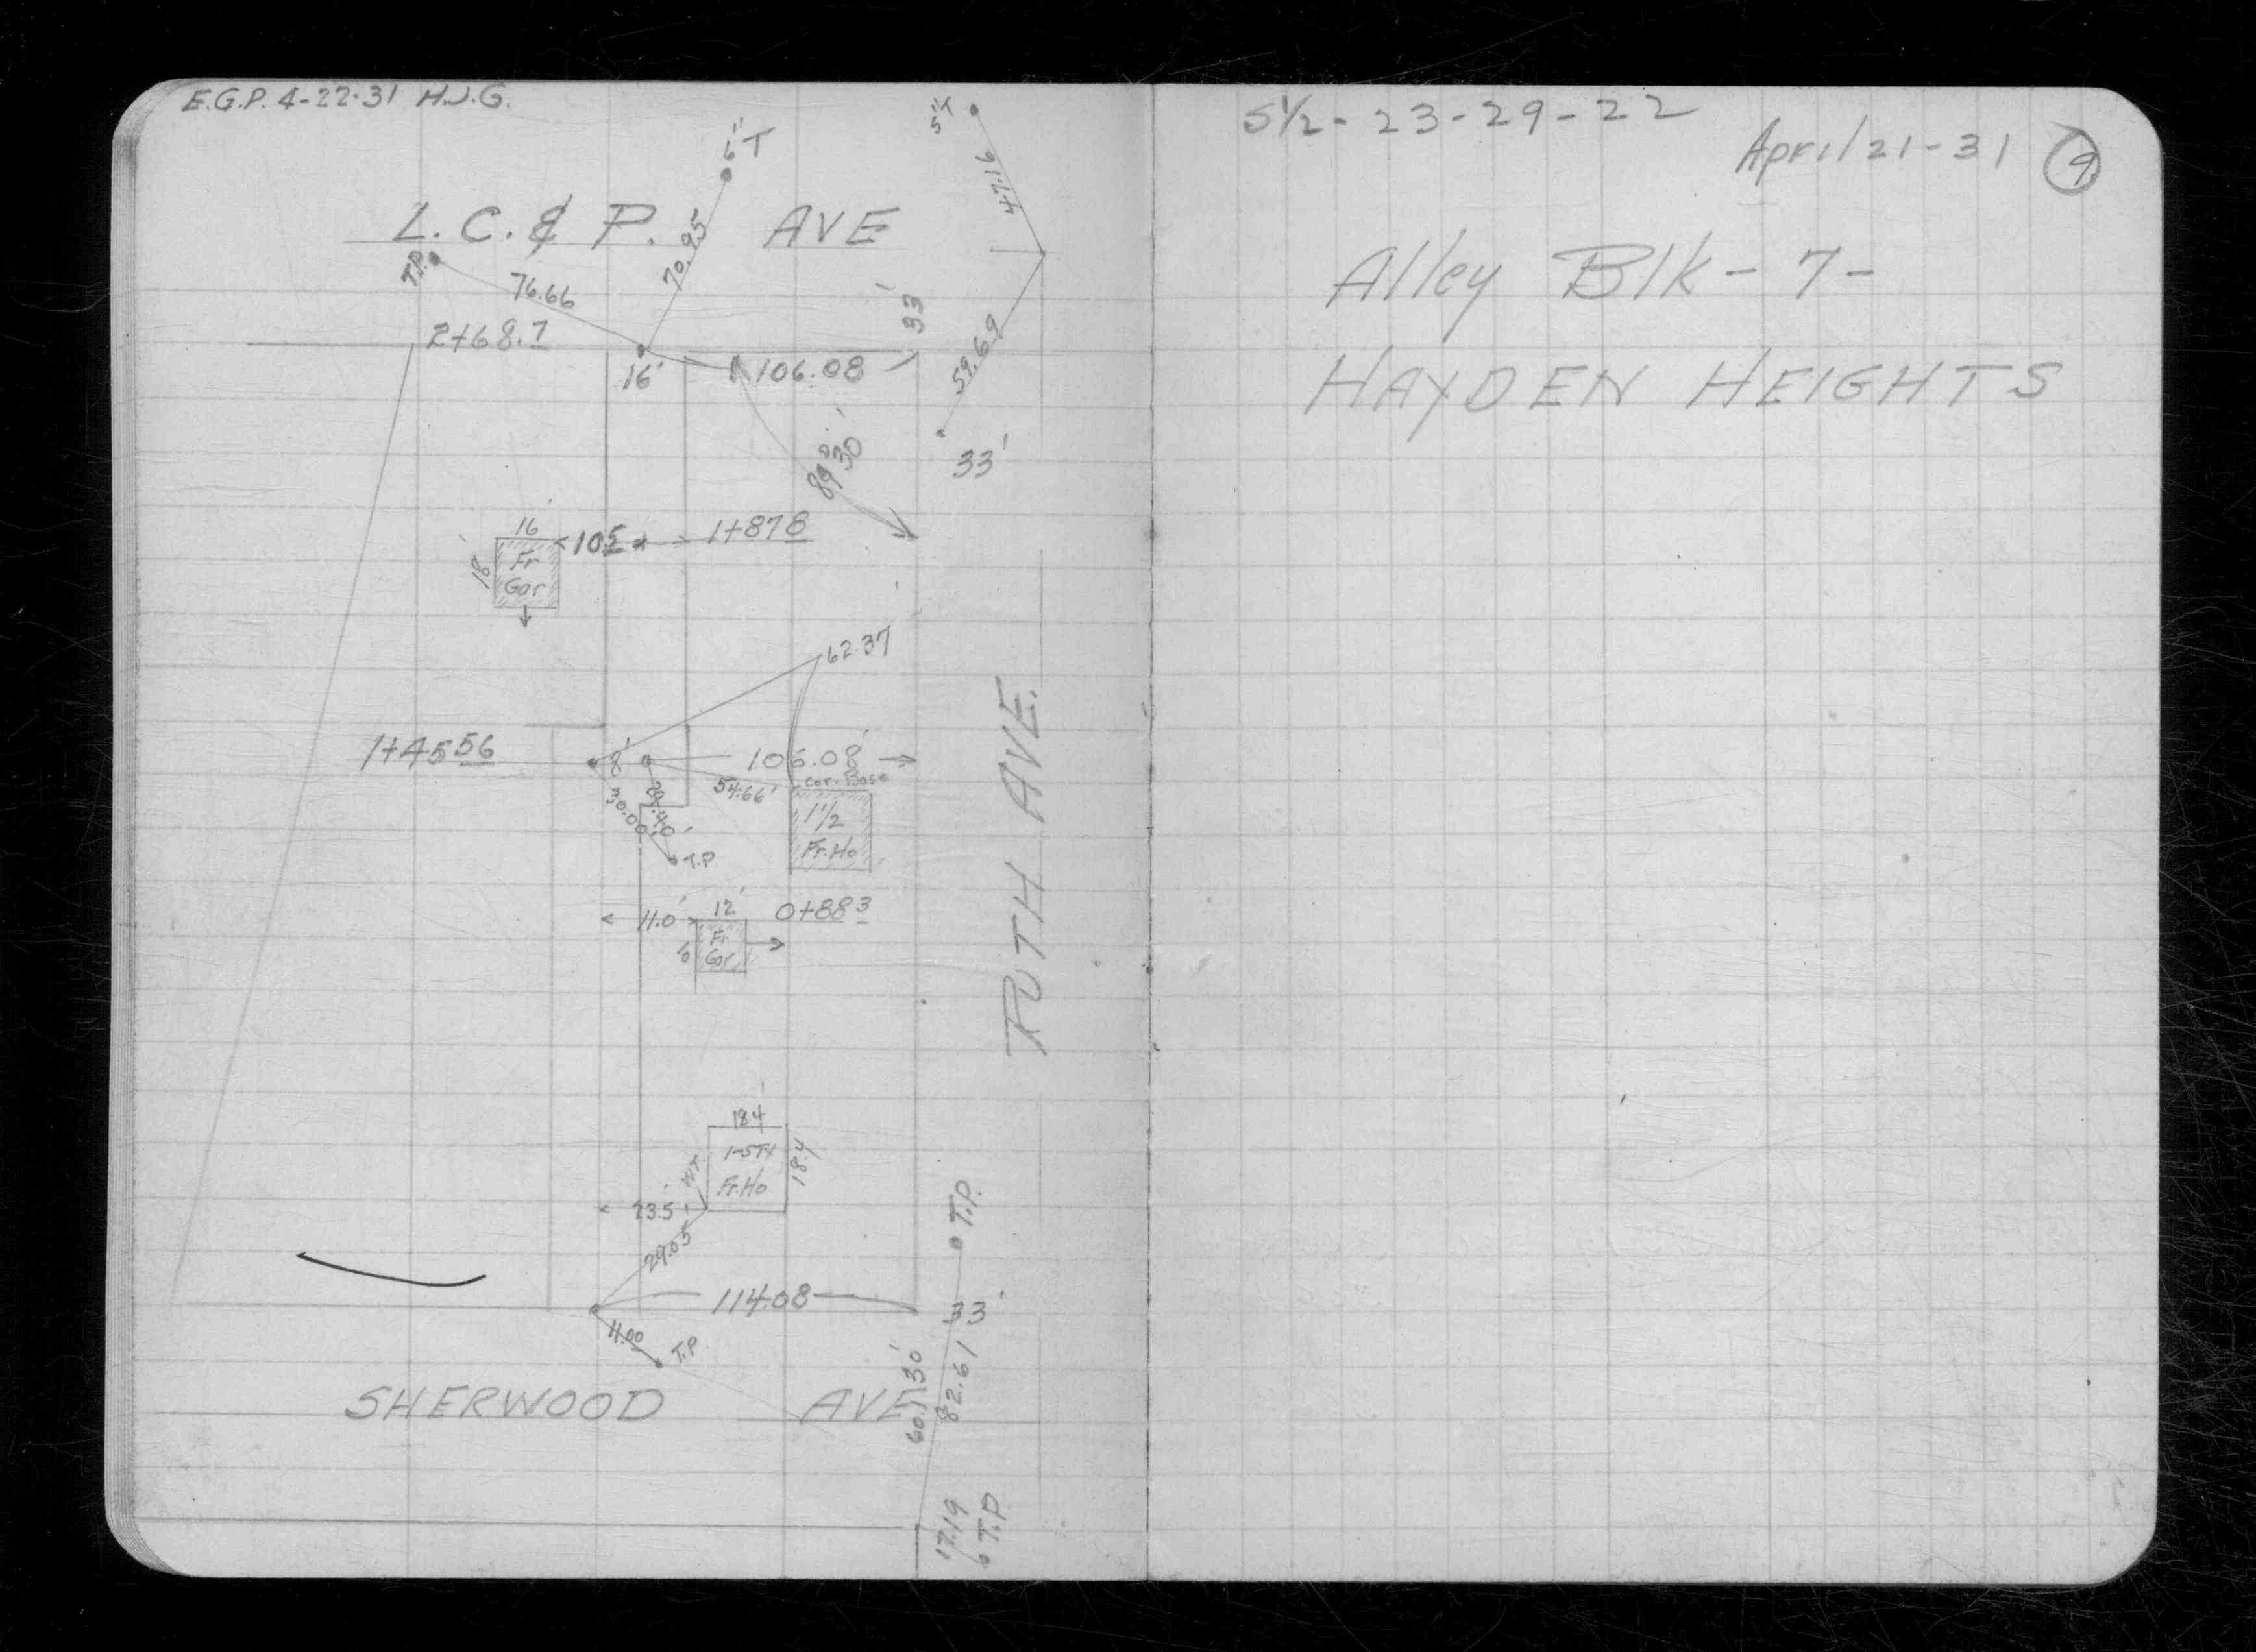 E.G.P. 4-22-31 H.J.G.
6" T
5" T
47.16
L. C. & P. AVE
T.P.
76.66
70.95
33'
2+68.7
16'
106.08
59.69
89°30'
33'
16'
18'
Fr
Gar
10 5
1+87 8
62.37
1+45 56
8'
106.08'
54.66'
cor. Base
29.40'
30.00'
T.P
1 1/2
Fr. Ho
11.0'
12'
0+88 3
Fr
Gar
RUTH AVE.
18.4
1-STY
Fr. Ho
18.4
W.T.
23.5'
29.05
T.P.
114.08
33'
11.00
T.P
SHERWOOD AVE
30'
60.1
82.61
17.19
T.P
S 1/2 - 23 - 29 - 22
April 21 - 31
9
Alley Blk - 7 -
HAYDEN HEIGHTS